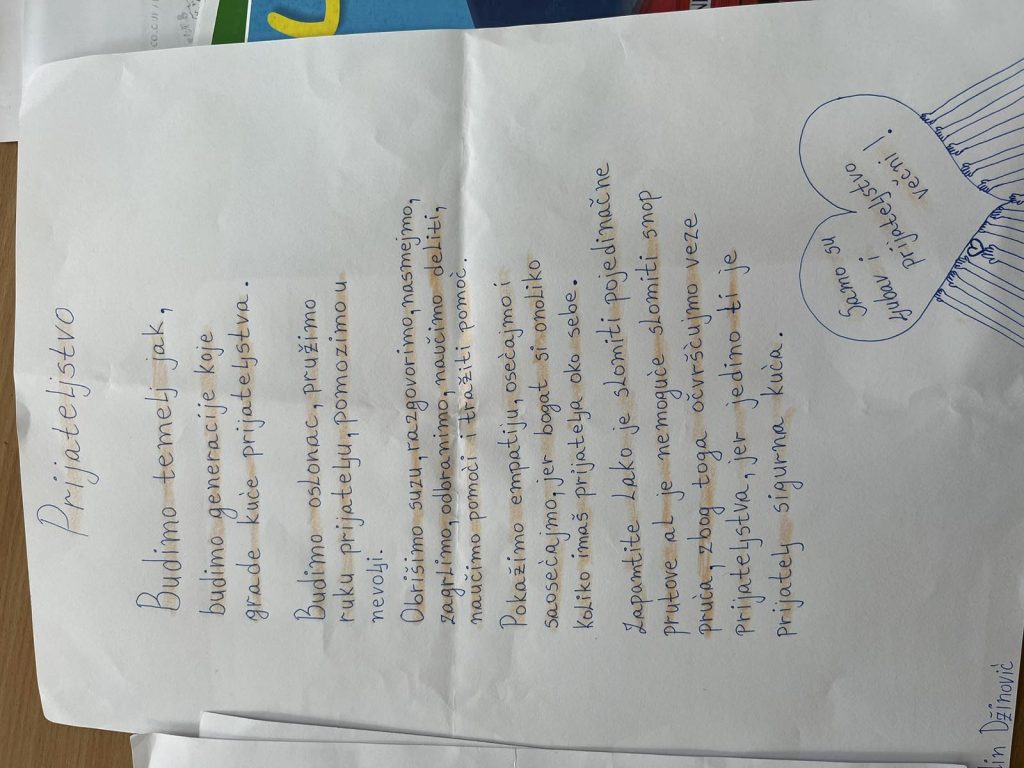 Prijateljstvo
Budimo temelj jak,
budimo generacije koje
grade kuće prijateljstva.
Budimo oslonac, pružimo
ruku prijatelju, pomozimo u
nevolji.
Obrišimo suzu, razgovorimo, nasmejmo,
zagrlimo, odbranimo, naučimo deliti,
naučimo pomoći i tražiti pomoć.
Pokažimo empatiju, osećajmo i
saosećajmo, jer bogat si onoliko
koliko imaš prijatelja oko sebe.
Zapamtite Lako je slomiti pojedinačne
prutove al je nemoguće slomiti snop
pruća, zbog toga očvršćujmo veze
prijateljstva, jer jedino ti je
prijatelj sigurna kuća.
Samo su
ljubav i
prijateljstvo
večni!
lin Džinović